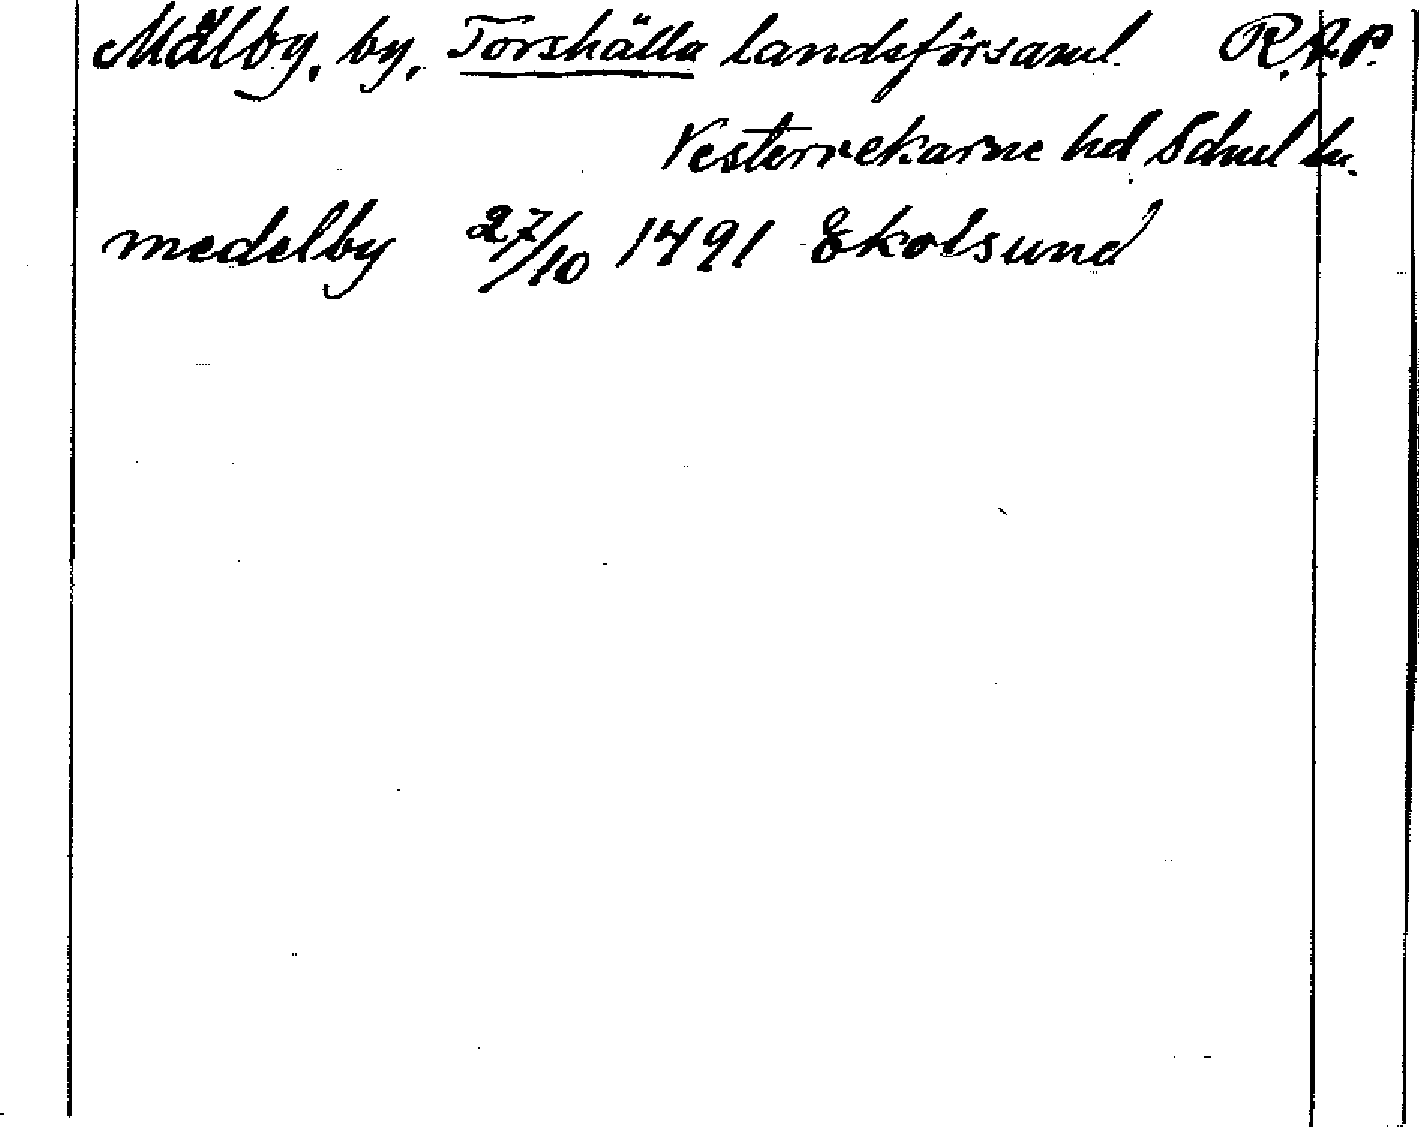 Mälby, by, Torshälla landsförsaml. R.A.P.
Vesterrekarne hd Söml ln.
medelby 27/10 1491 Ekolsund